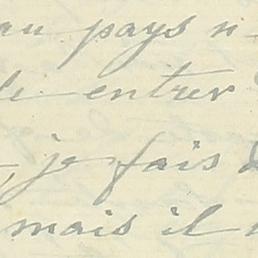 au pays n
entrer
, je fais
mais il